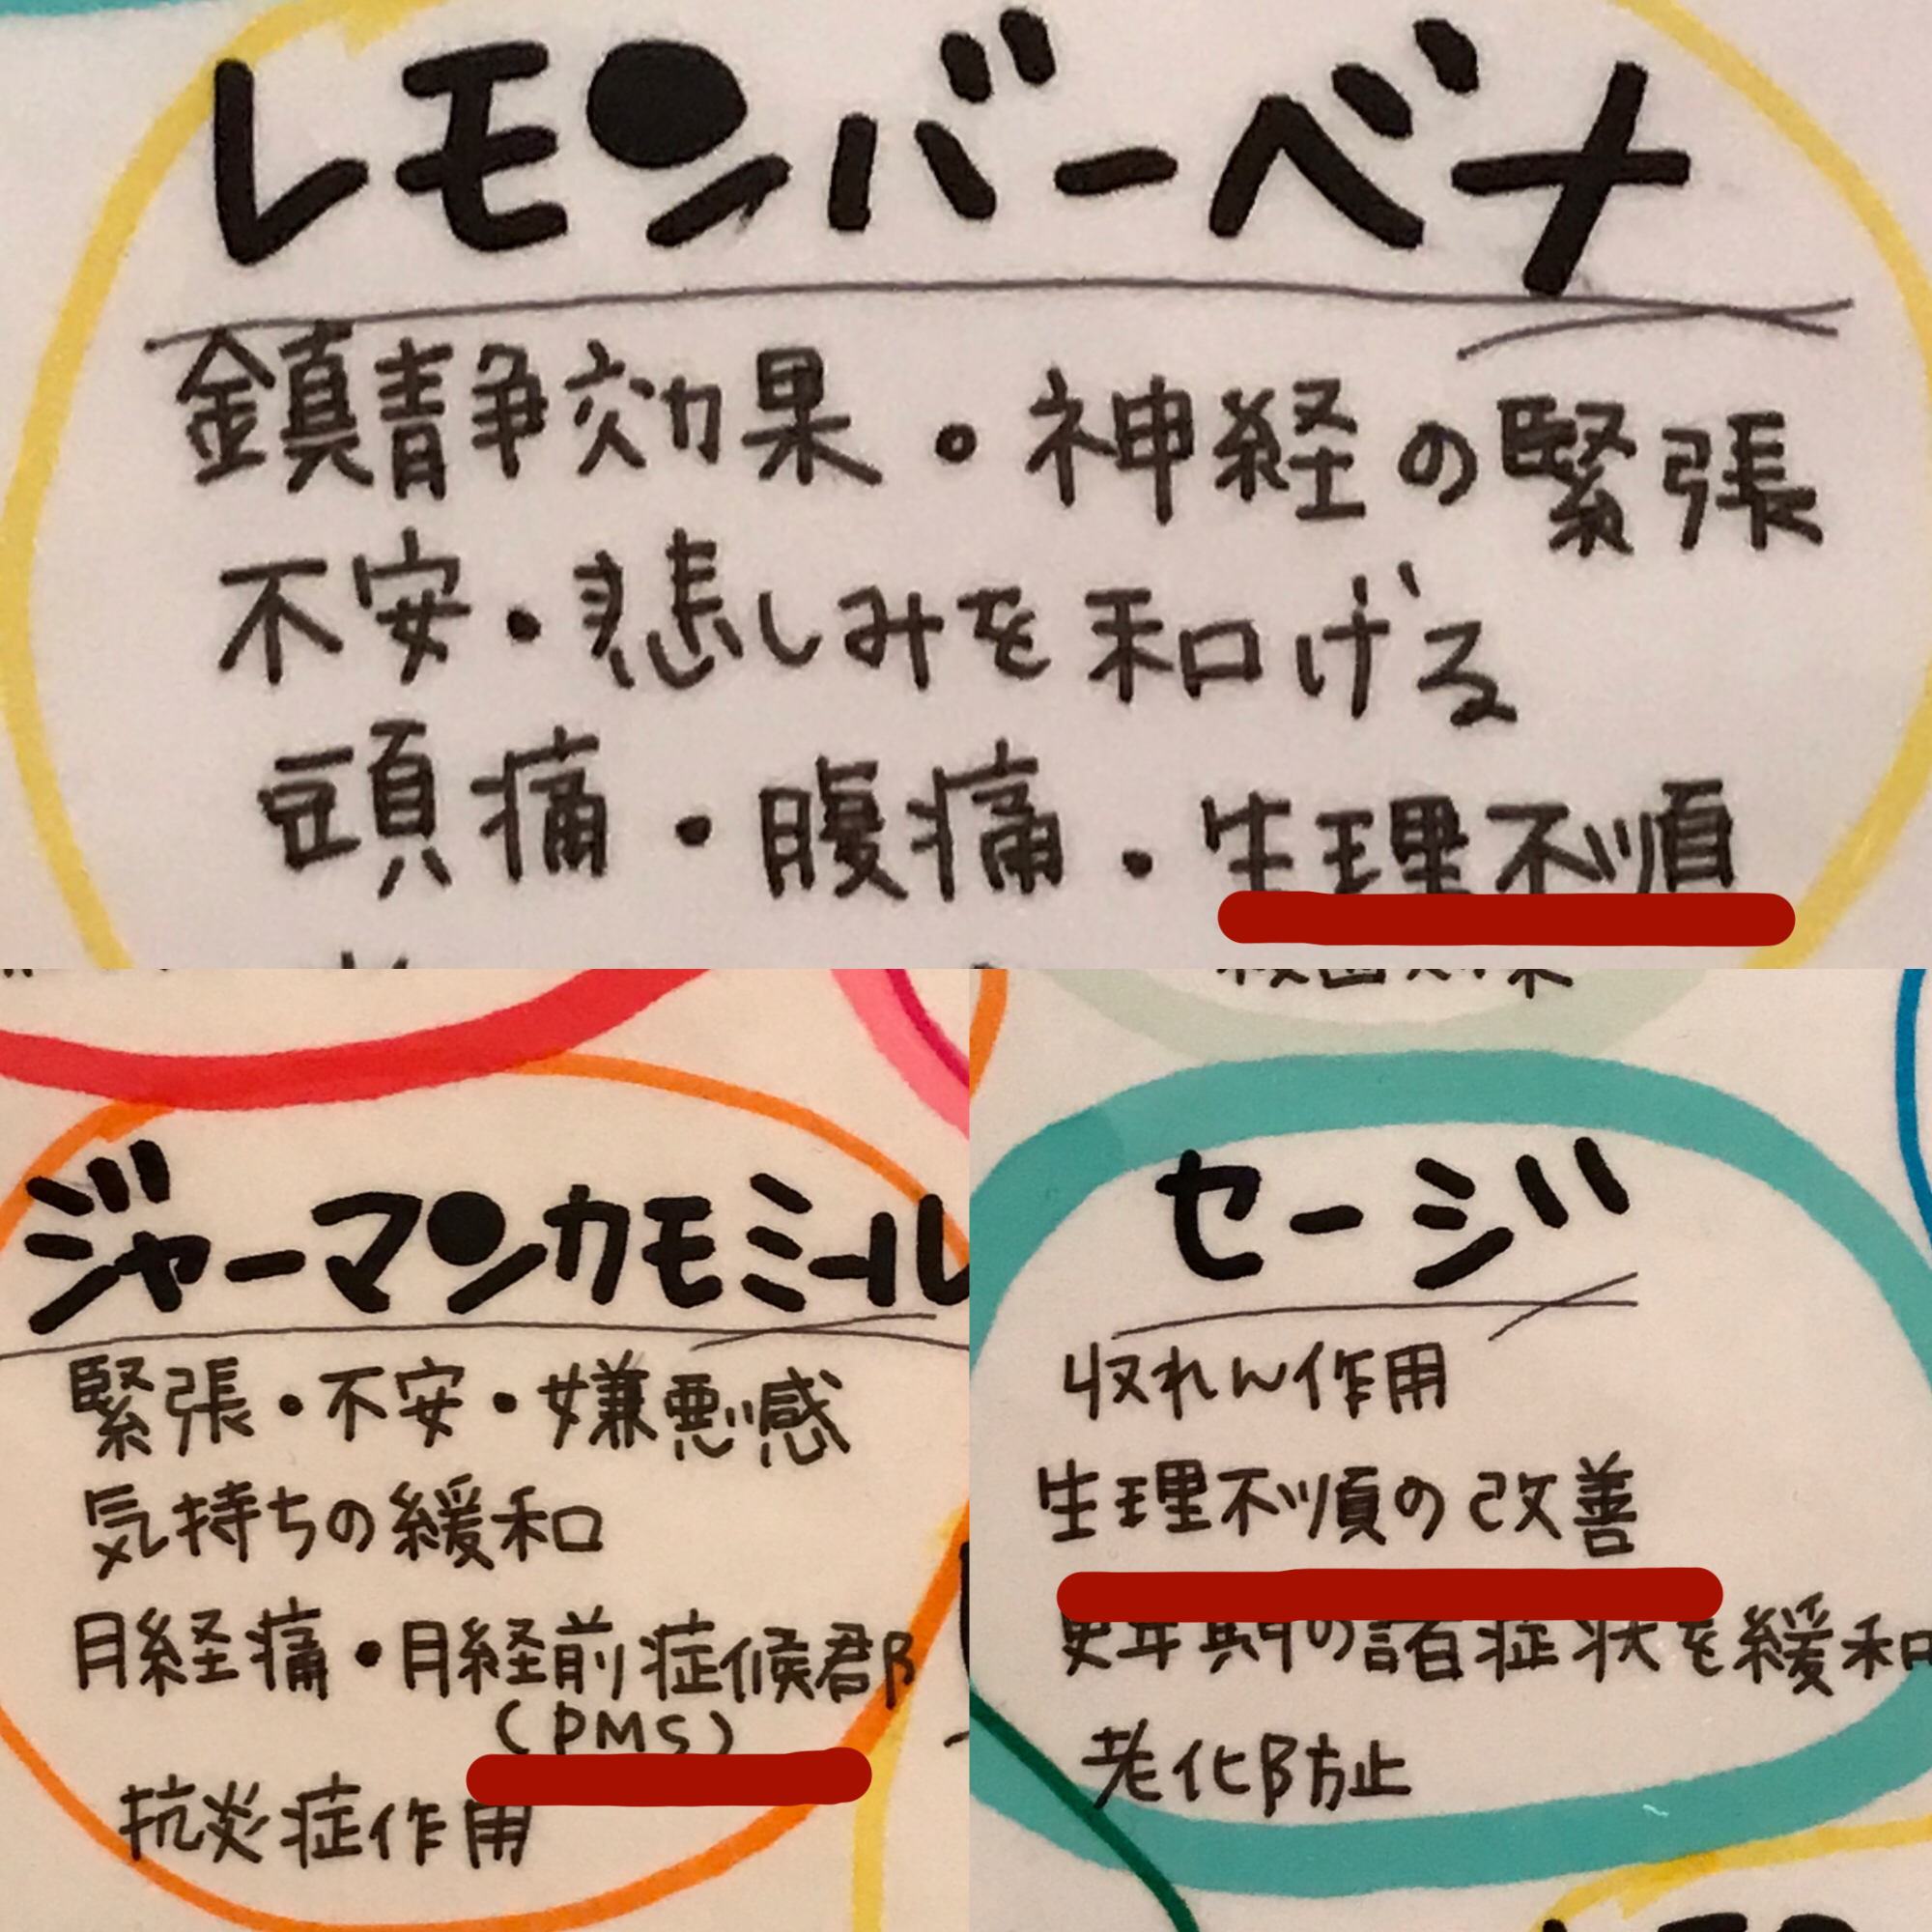 レモンバーベナ
鎮静効果・神経の緊張
不安・悲しみを和げる
頭痛・腹痛・生理不順
ジャーマンカモミール
緊張・不安・嫌悪感
気持ちの緩和
月経痛・月経前症候郡
(PMS)
抗炎症作用
セージ
収れん作用
生理不順の改善
更年期の諸症状を緩和
老化防止